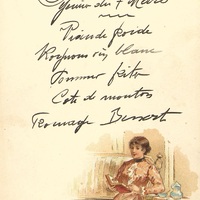 du 7
Viande froide
Rognons vin blanc
Pommes frites
Cote de mouton
Fromage Dessert